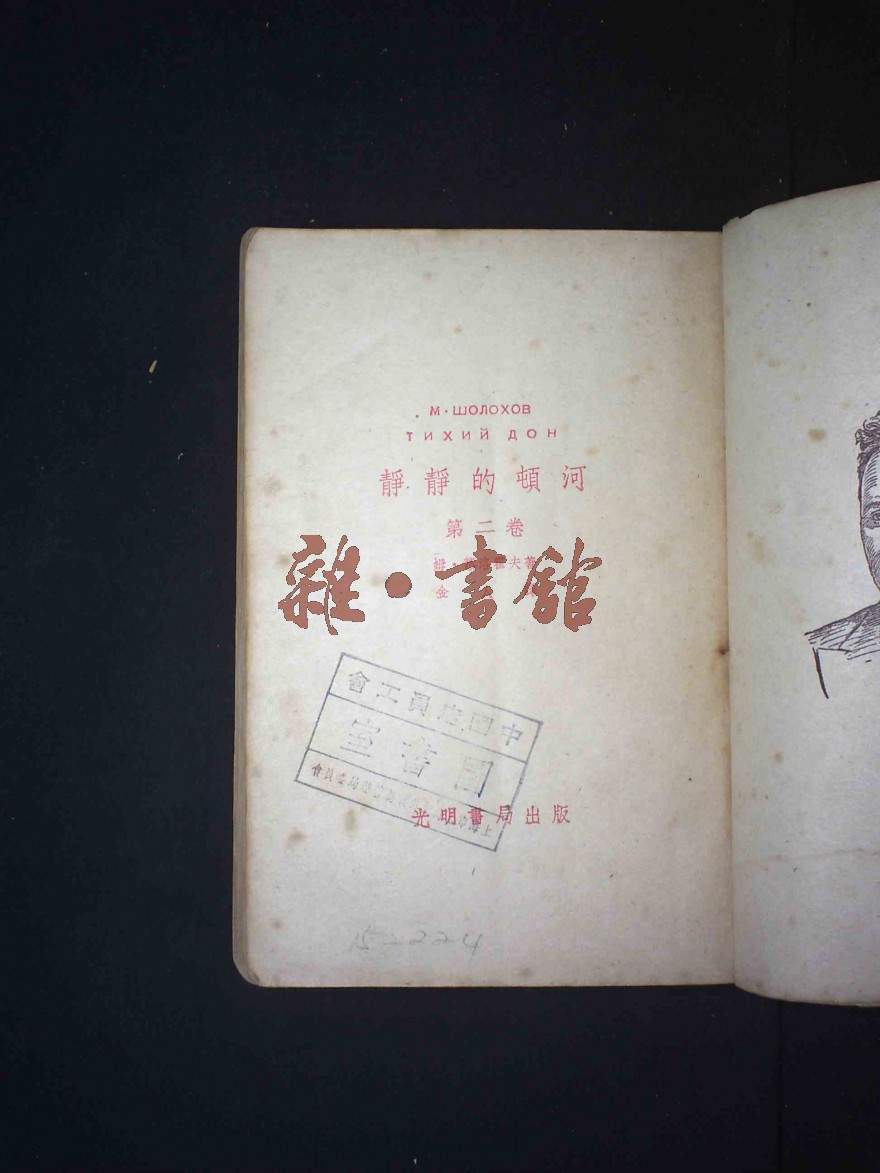 М·ШОЛОХОВ
ТИХИЙ ДОН
靜靜的頓河
第二卷
夫著
金
雜·書舘
中國店員工會
圖書室
光明書局出版
15-224